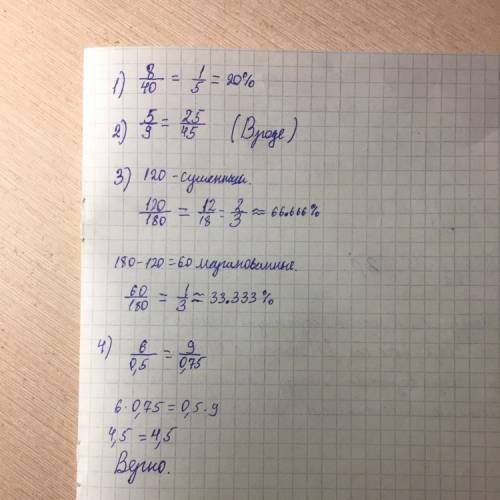 1) 8/40 = 1/5 = 20%
2) 5/9 = 25/45 (Вроде)
3) 120 - сушенный.
120/180 = 12/18 = 2/3 ≈ 66.666%
180-120=60 маринованные.
60/180 = 1/3 ≈ 33.333%
4) 6/0,5 = 9/0,75
6·0,75=0,5·9
4,5=4,5
Верно.